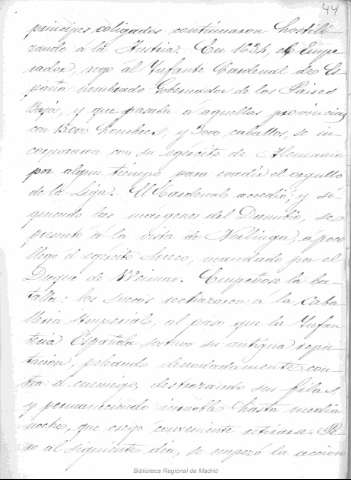 44
príncipes coligados continuaron hostili-
zando a la Austria. En 1634, el Empe-
rador, rogó al Infante Cardenal de Es-
paña nombrado Gobernador de los Países
Bajos, y que pasaba a aquellas provincias
con hombres, y caballos, se in-
corporara con su ejército de Alemania
por algún tiempo para el orgullo
de la Liga. El Cardenal accedió, y si-
guiendo las márgenes del Danubio, se
presentó a la vista de a poco
llegó el ejército Sueco, mandado por el
Duque de Weimar. Empeñose la ba-
talla: los suecos rechazaron a la Caba-
llería Imperial, al paso que la Infan-
tería Española sostuvo su antigua repu-
tación, peleando denodadamente con-
tra el enemigo, destrozando sus filas
y permaneciendo inmoble hasta media
noche, que creyó conveniente retirarse. Pe-
ro al siguiente día, se empezó la acción
Biblioteca Regional de Madrid